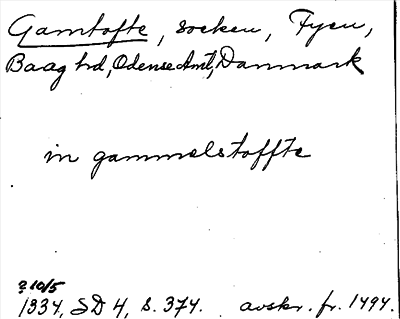 Gamtofte, socken, Fyen,
Baag hd, Odense Amt, Danmark
in gammelstoffte
? 10/5
1334, SD 4, s. 374. avskr. fr. 1494.